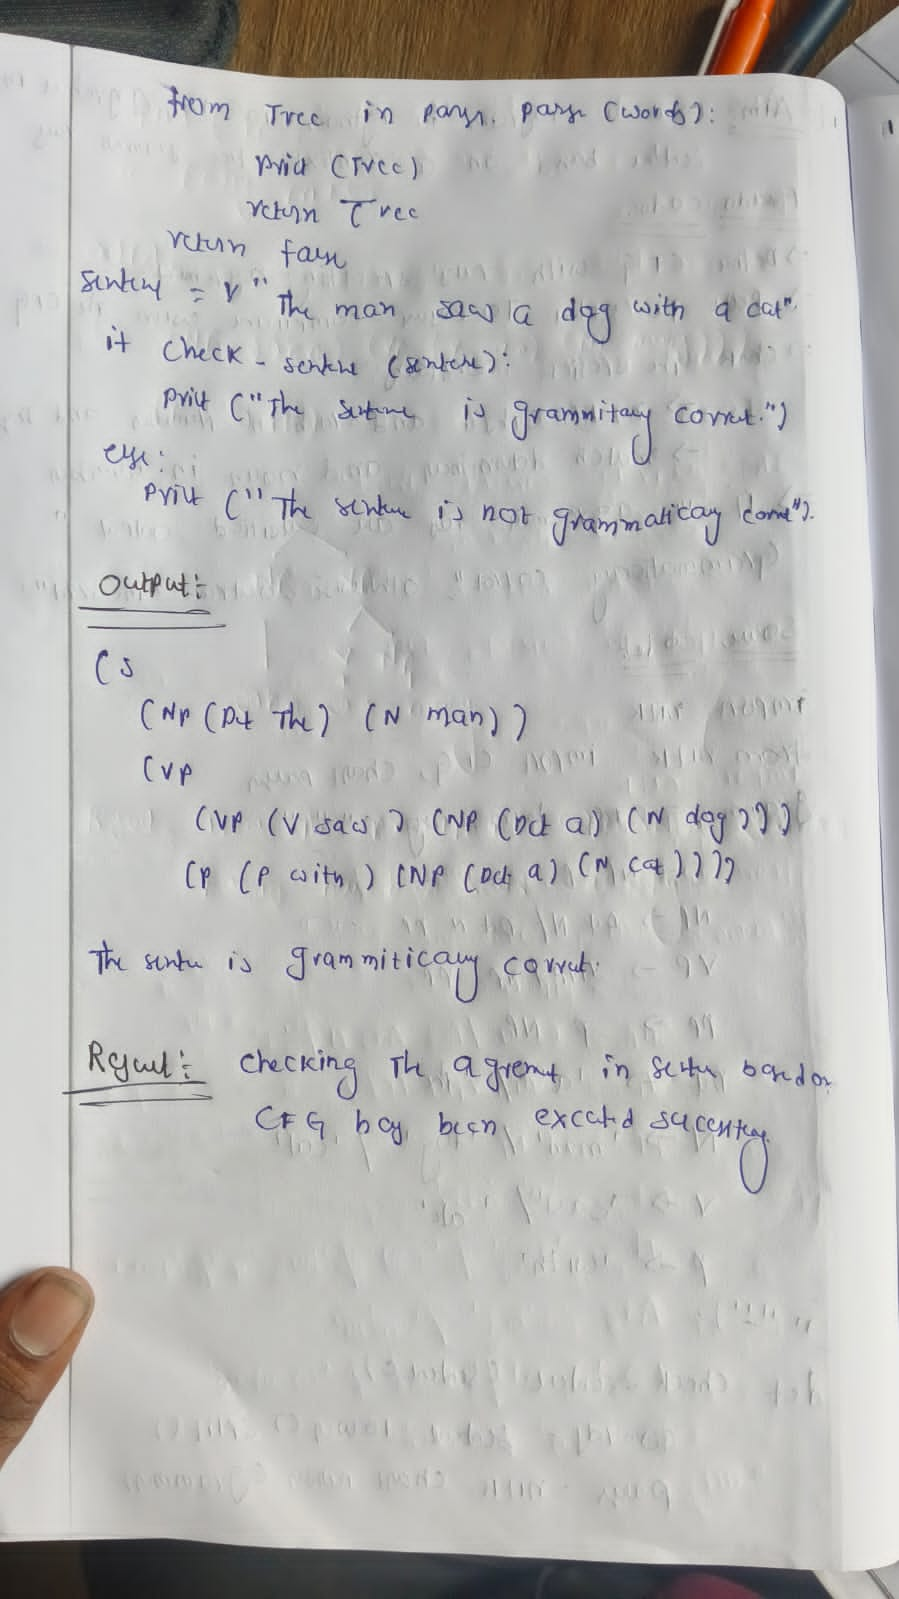 from Tree in parser. parse (words):
print (Tree)
return Tree
return false
sentence = "The man saw a dog with a cat".
if check - sentence (sentence):
print ("The sentence is grammitacy correct.")
else:
print ("The sentence is not grammaticay correct").
Output:-
(S
(NP (Det The) (N man))
(VP
(VP (V saw) (NP (Det a) (N dog)))
(P (P with) (NP (Det a) (N cat))))
The sentence is grammiticauy correct.
Result:- Checking The agremet in sentence based on
CFG has been excuted succesfuy.